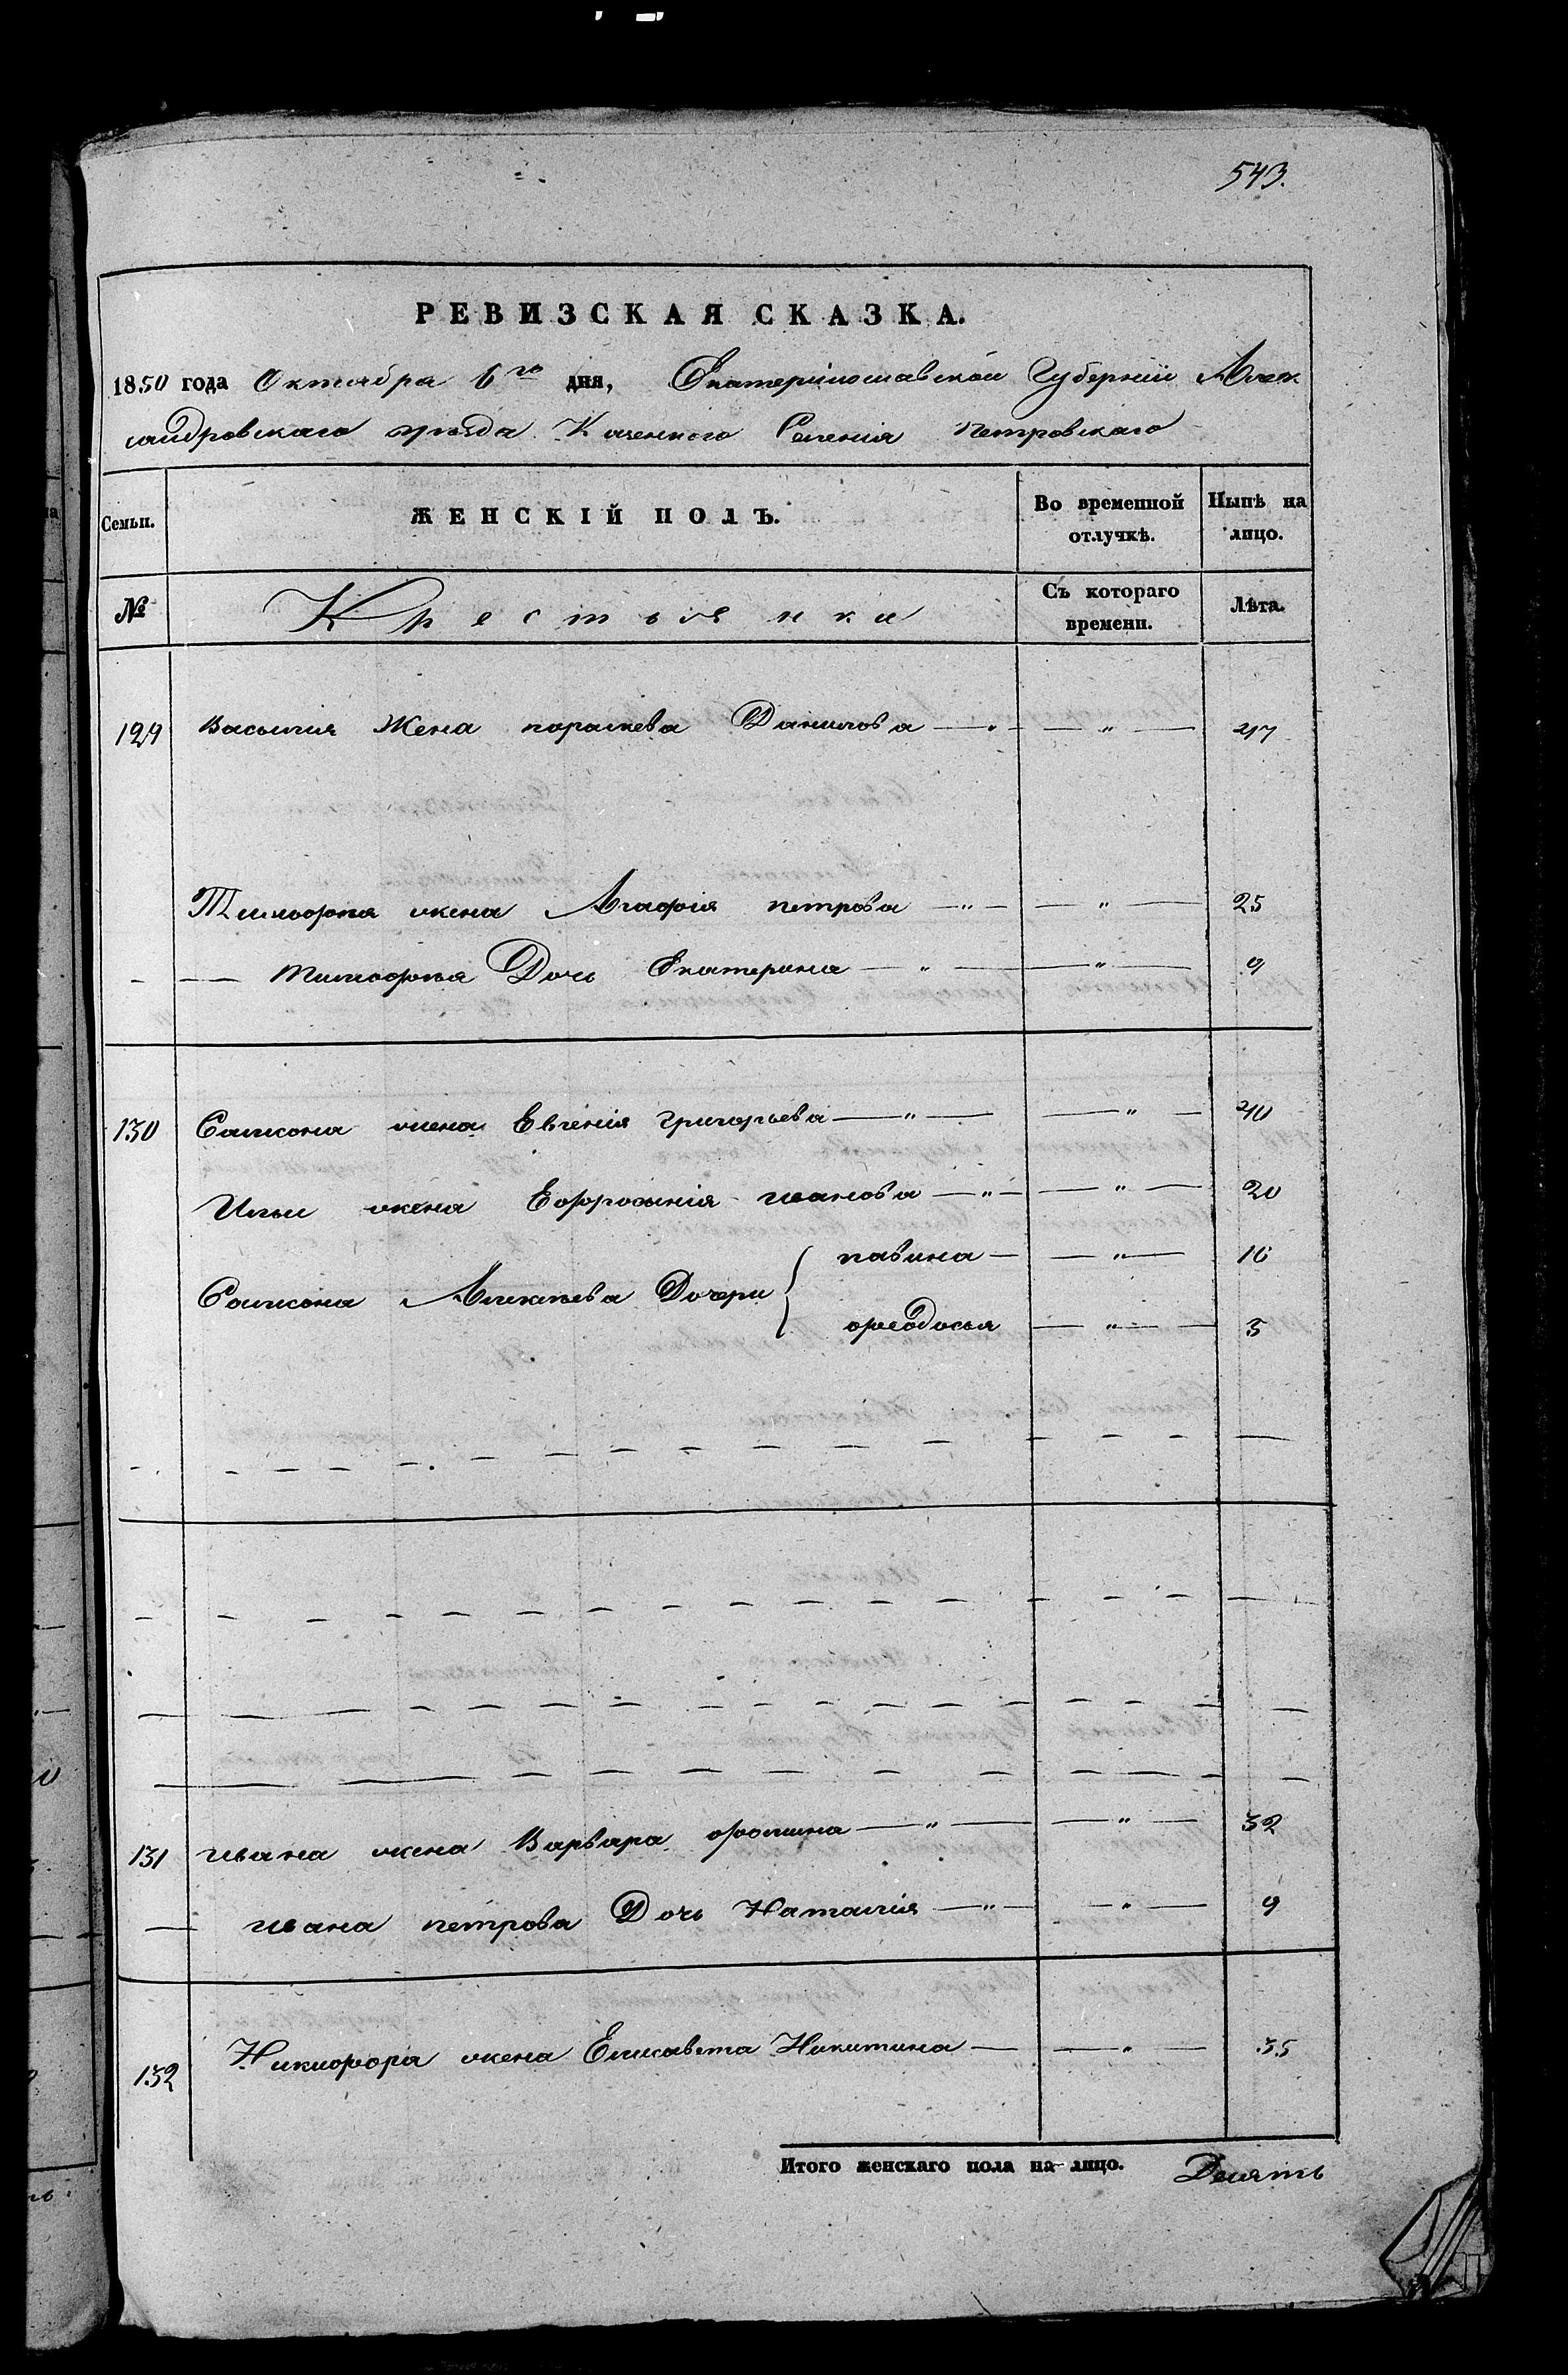 543.
РЕВИЗСКАЯ СКАЗКА.
1850 года Октября 6го дня, Екатеринославской Губернии Алек
сандровскаго уезда Казенного Селения петровскаго
Семьи. ЖЕНСКІЙ ПОЛЪ. Во временной отлучкѣ. Нынѣ на лицо.
№ Крестьянки Съ котораго времени. Лѣта.
129 Василия Жена параскева Данилова — " — — " — 47
Тимофея жена Агафия петрова — " — — " — 25
- — тимофея Дочь Екатерина — " — — " — 9
130 Самсона жена Евгения григорьева — " — — " — 40
Ильи жена Ефросиния иванова — " — — " — 20
павлина — — " — 16
Самсона Алексеева Дочери {
феодосья — " — 5
131 ивана жена Варвара фомина — " — — " — 32
— ивана петрова Дочь Наталия — " — — " — 9
132 Никифора жена Елисавета Никитина — — " — 35
Итого женскаго пола на-лицо. Десять